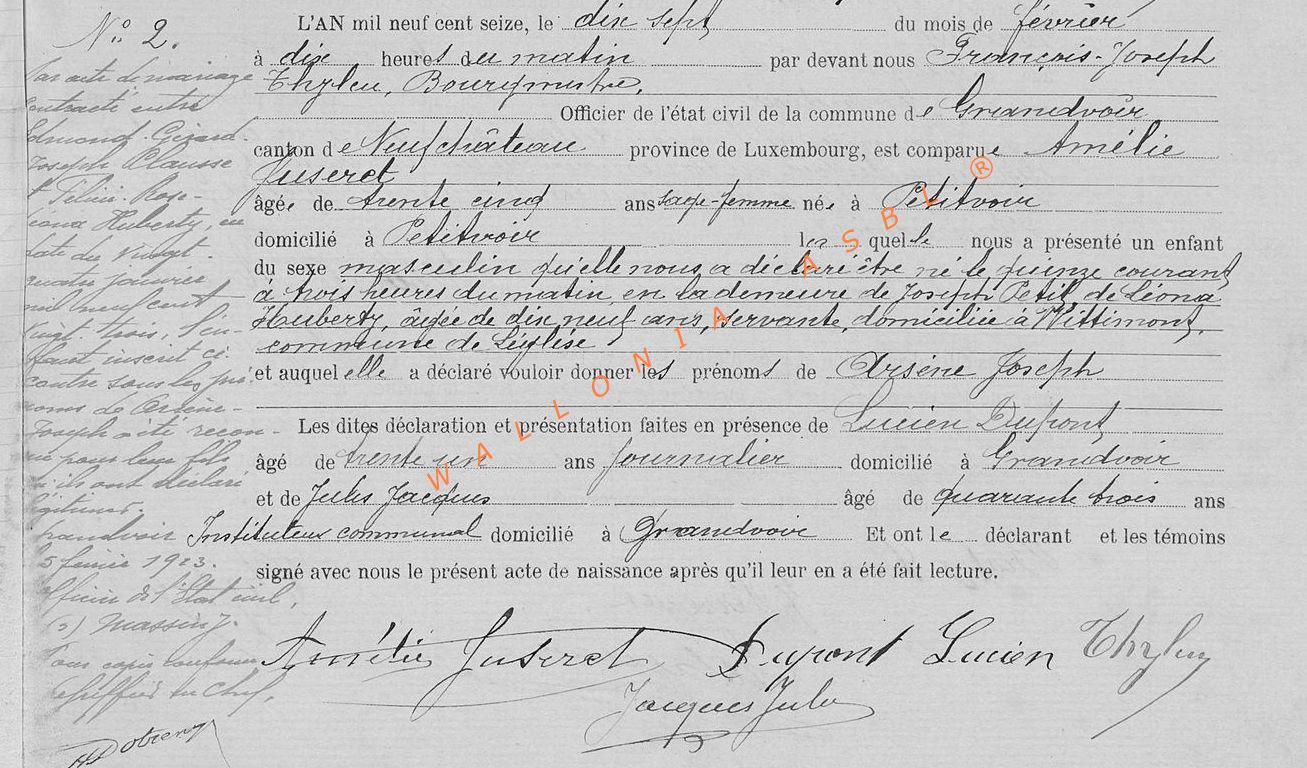 N° 2.
Par acte de mariage
contracté entre
Edmond-Gérard-
Joseph Clausse
et Félicie-Rose-
Léona Huberty, en
date du vingt-
quatre janvier
mil neuf cent
vingt-trois, l'en-
fant inscrit ci-
contre sous les pré-
noms de Arsène-
Joseph a été recon-
nu pour leur fils
qu'ils ont déclaré
légitimer.
Grandvoir
5 février 1923.
Officier de l'Etat civil,
(s) Massin J.
Pour copie conforme
Le greffier en chef,
L'AN mil neuf cent seize, le dix sept du mois de février
à dix heures du matin par devant nous François-Joseph
Thyleu, Bourgmestre,
Officier de l'état civil de la commune de Grandvoir
canton de Neufchâteau province de Luxembourg, est comparue Amélie
Juseret
âgée de trente cinq ans sage-femme née à Petitvoir
domicilié à Petitvoir laquelle nous a présenté un enfant
du sexe masculin qu'elle nous a déclaré être né le quinze courant
à trois heures du matin, en la demeure de Joseph Petit, de Léona
Huberty, âgée de dix neuf ans, servante, domiciliée à Wittimont,
commune de Léglise
et auquel elle a déclaré vouloir donner les prénoms de Arsène Joseph
Les dites déclaration et présentation faites en présence de Lucien Dupont
âgé de trente un ans journalier domicilié à Grandvoir
et de Jules Jacques âgé de quarante trois ans
Instituteur communal domicilié à Grandvoir Et ont le déclarant et les témoins
signé avec nous le présent acte de naissance après qu'il leur en a été fait lecture.
Amélie Juseret Dupont Lucien Thyleu
Jacques Jules
WALLONIA ASBL ®